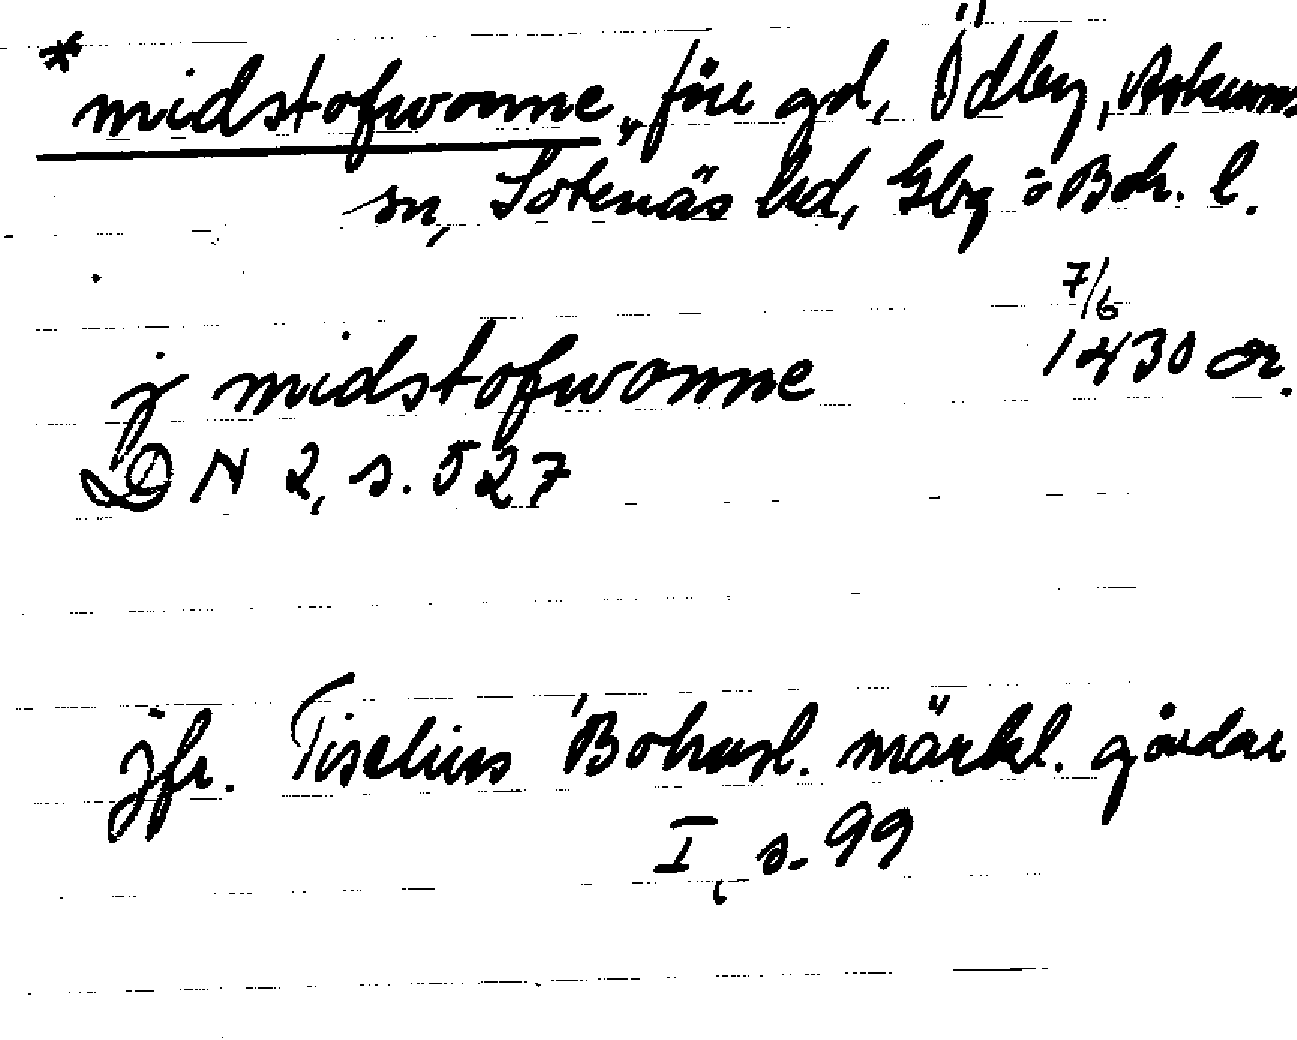 * midstofwonne, före gd, Ödby, Askums
sn, Sotenäs hd, Gbg o Boh. l.
7/6
j midstofwonne 1430 or.
DN 2, s. 527
Jfr. Tiselius Bohusl. märkl. gårdar
I, s. 99